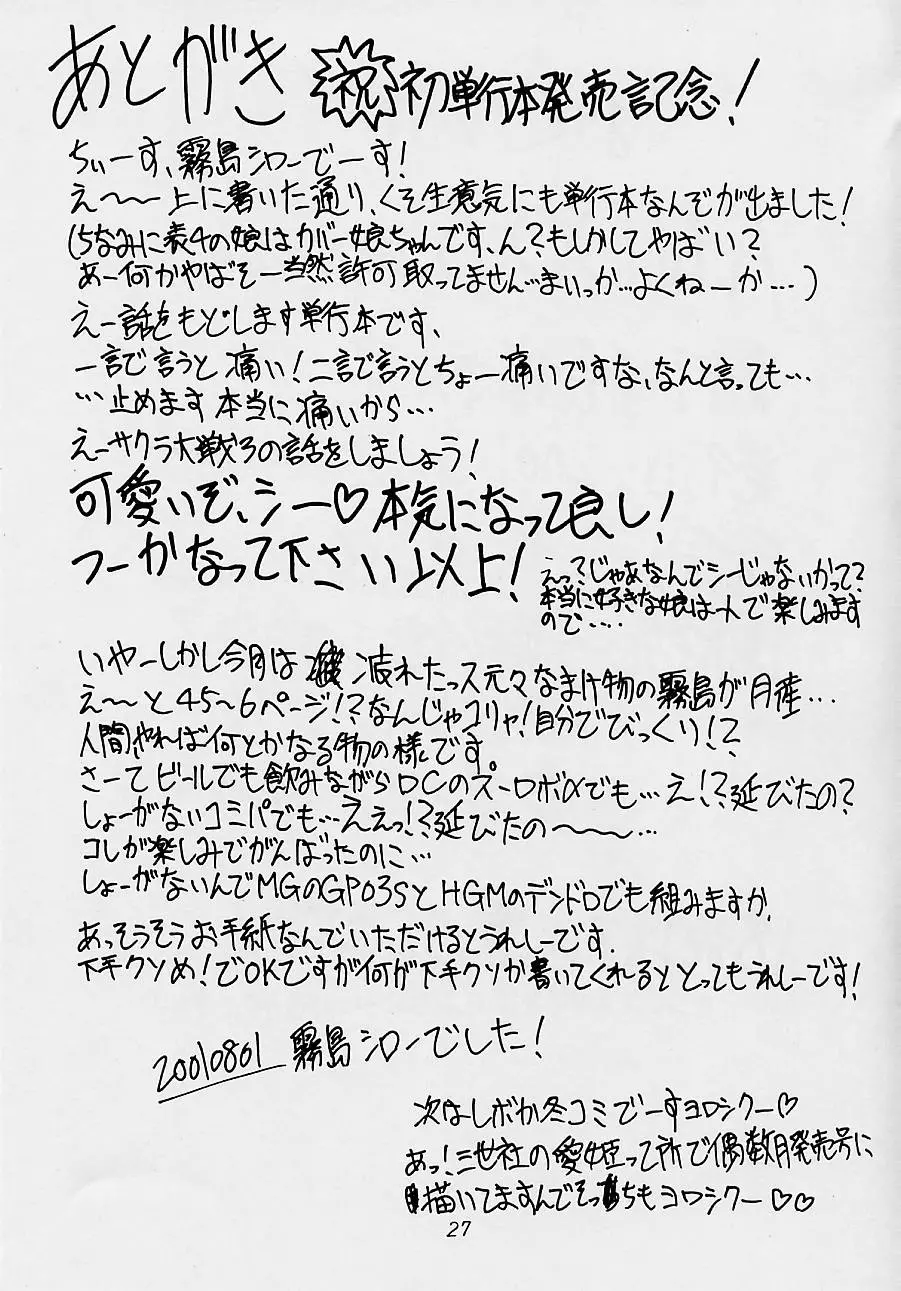 あとがき 祝 初単行本発売記念!
ちぃーす、霧島シローでーす!
え〜〜上に書いた通り、くそ生意気にも単行本なんぞが出ました!
(ちなみに表4の娘はカバー娘ちゃんです、ん?もしかしてやばい?
あー何かやばそー当然許可取ってません…まいっか…よくねーか…)
えー話をもどします単行本です、
一言で言うと痛い!二言で言うとちょー痛いですな、なんと言っても…
…止めます本当に痛いから…
えーサクラ大戦3の話をしましょう!
可愛いぞ、シー♡本気になって良し!
つーかなって下さい以上!
えっ?じゃあなんでシーじゃないかって?
本当に好きな娘は一人で楽しみます
ので‥‥
いやーしかし今月は 疲れたっス元々なまけ物の霧島が月産…
え〜と45〜6ページ!?なんじゃコリャ!自分でびっくり!?
人間やれば何とかなる物の様です
さーてビールでも飲みながらDCのスーロボαでも…え!?延びたの?
しょーがないコミパでも…ええっ!?延びたの〜〜〜…
コレが楽しみでがんばったのに…
しょーがないんでMGのGP03SとHGMのデンドロでも組みますか、
あっそうそうお手紙なんていただけるとうれしーです.
下手クソめ!でOKですが何が下手クソか書いてくれるととってもうれしーです!
20010801 霧島シローでした!
次はしボか冬コミでーすヨロシクー♡
あっ!三世社の愛姫って所で偶数月発売号に
描いてますんでそっちもヨロシクー♡♡
27